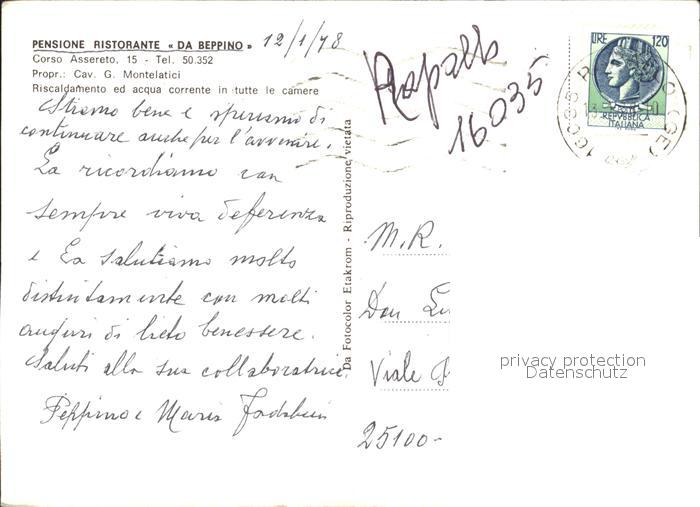 PENSIONE RISTORANTE « DA BEPPINO » 12/1/78
Corso Assereto, 15 - Tel. 50.352
Propr.: Cav. G. Montelatici
Riscaldamento ed acqua corrente in tutte le camere
Stiamo bene e speriamo di
continuare anche per l'avvenire.
La ricordiamo con
sempre viva deferenza
e La salutiamo molto
distintamente con molti
auguri di lieto benessere.
Saluti alla sua collaboratrice.
Peppino e Maria
Da Fotocolor Etakrom - Riproduzione vietata
Rapallo
16035
LIRE 120
REPVBBLICA
ITALIANA
(GE)
M.R.
Don
Viale
25100-
privacy protection
Datenschutz